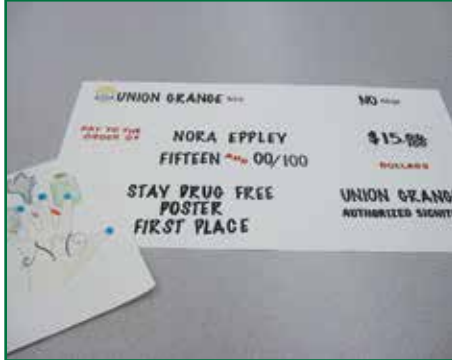 UNION GRANGE
NO
PAY TO THE
ORDER OF
NORA EPPLEY
$15.00
FIFTEEN AND 00/100
DOLLARS
STAY DRUG FREE
POSTER
FIRST PLACE
UNION GRANG
AUTHORIZED SIGNIT